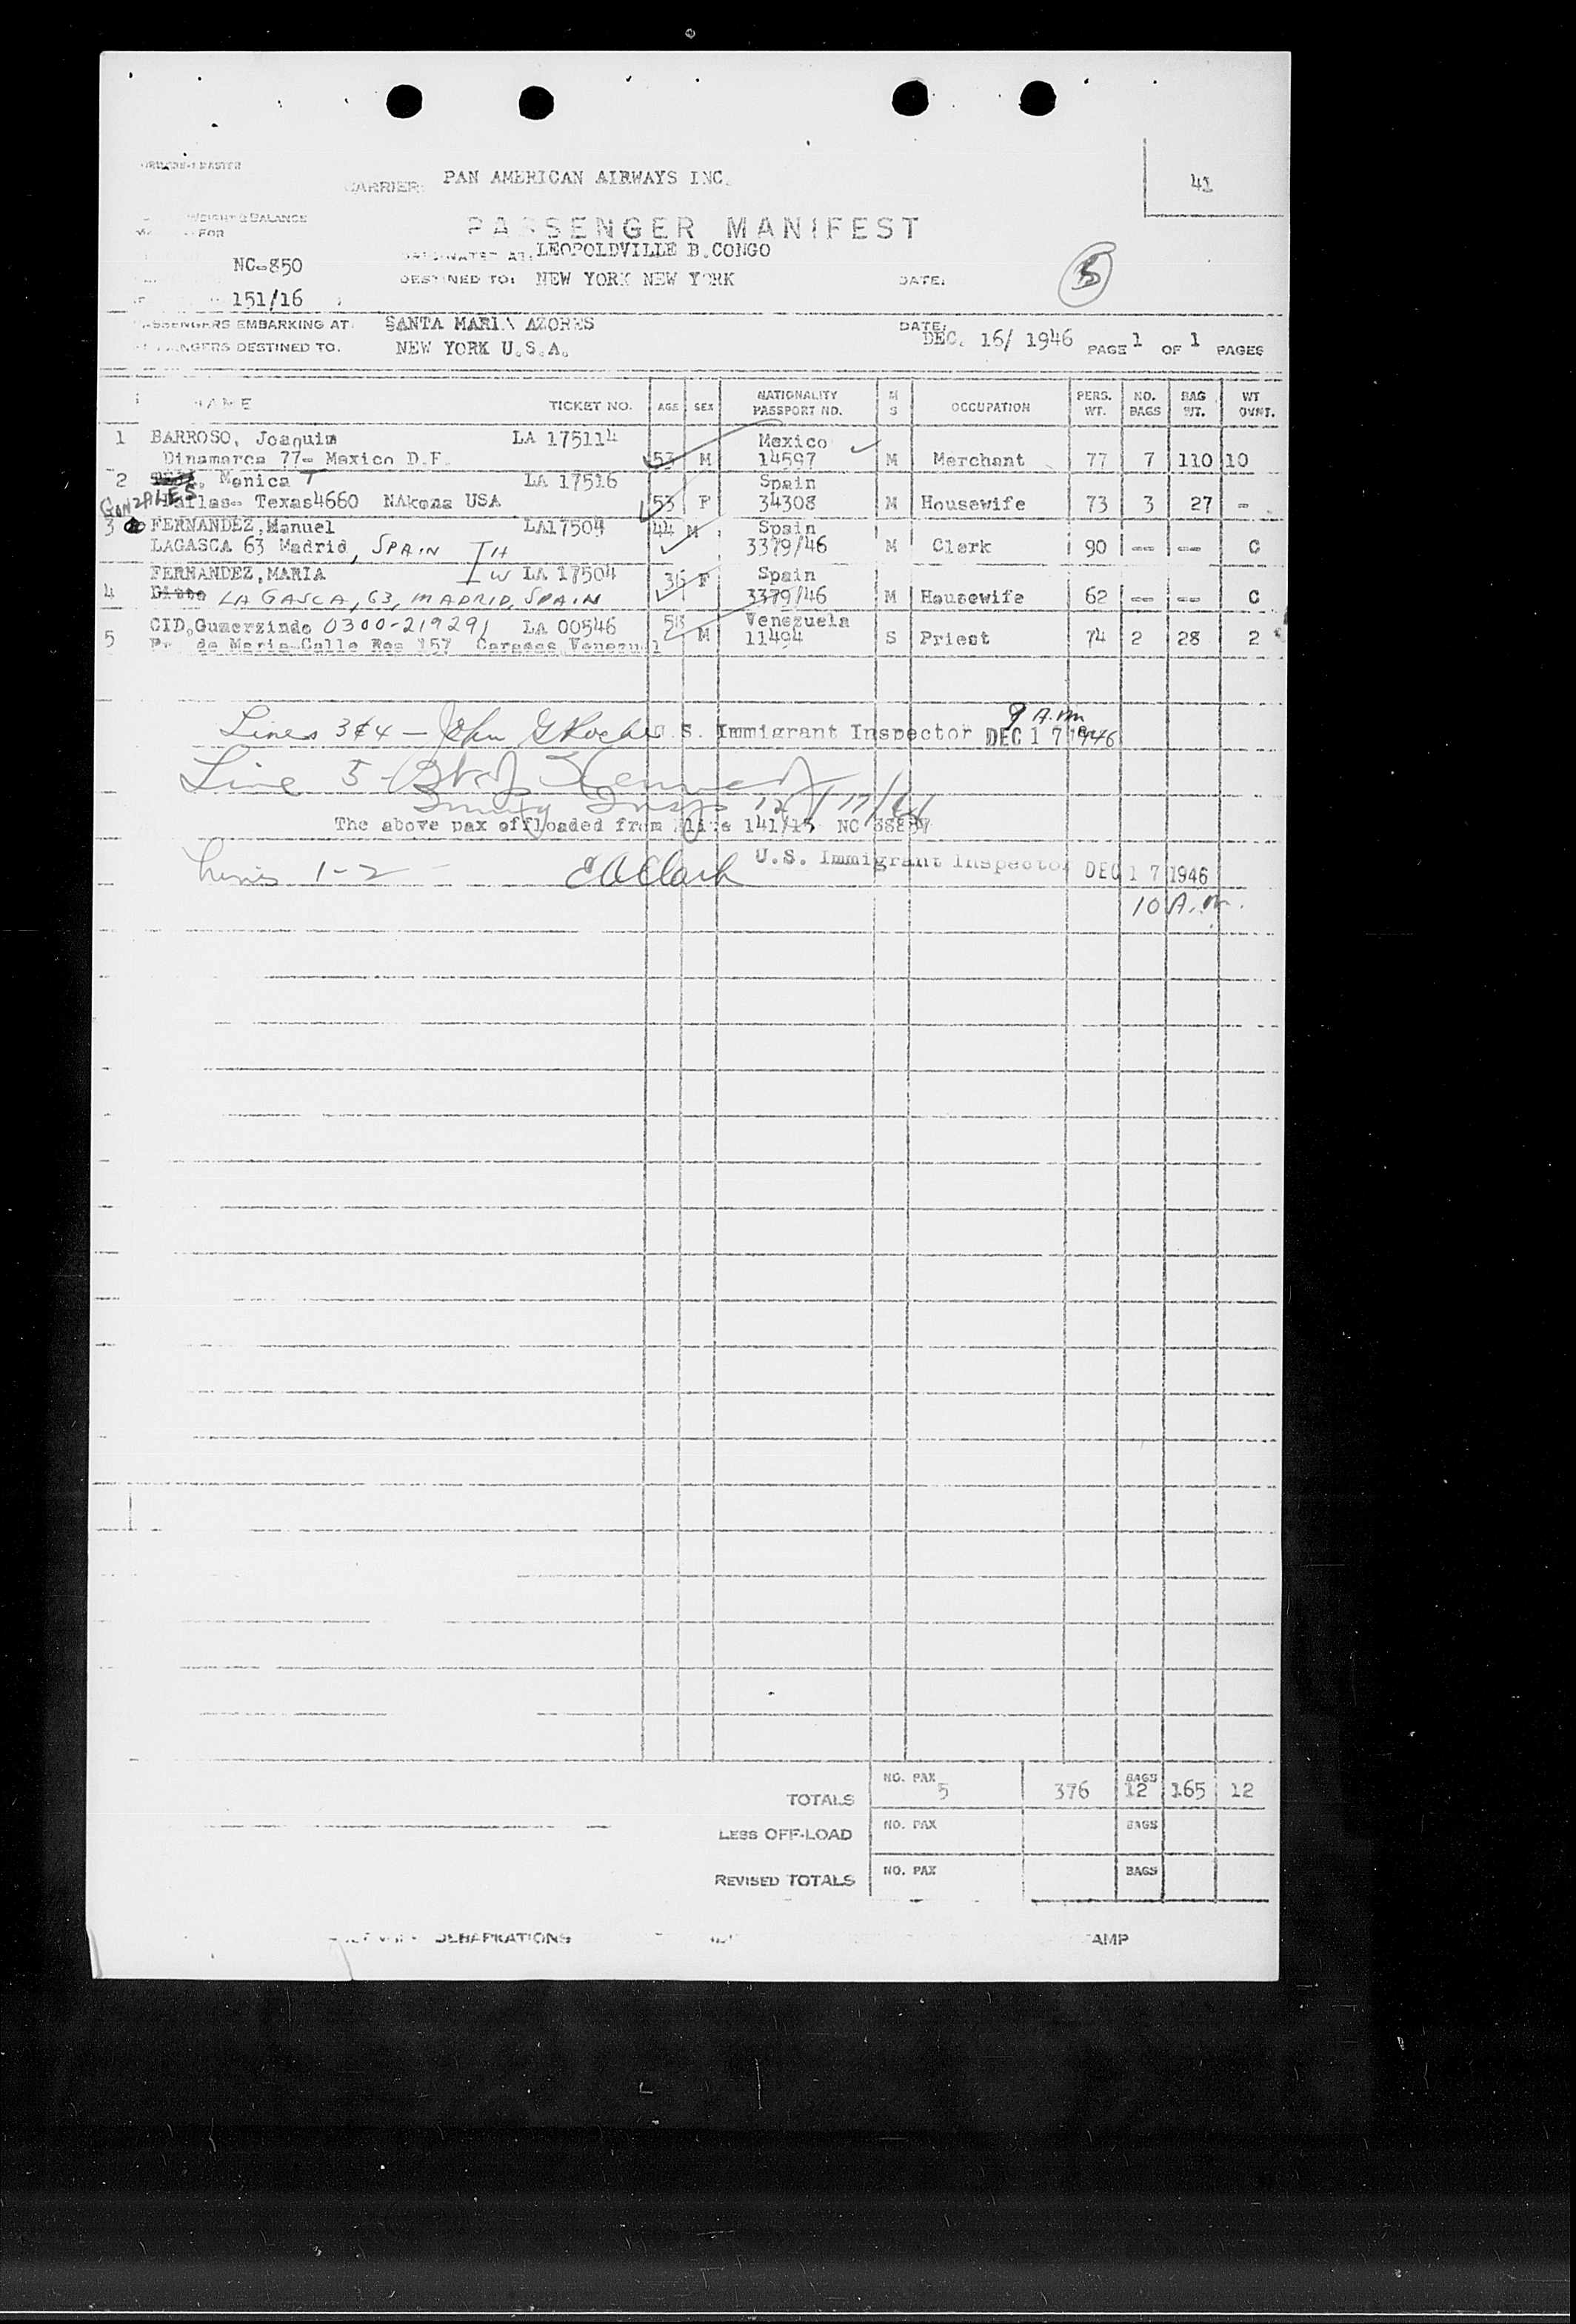 CARRIER: PAN AMERICAN AIRWAYS INC.
41
WEIGHT & BALANCE
FOR
PASSENGER MANIFEST
LEOPOLDVILLE B.CONGO
NC-850
DESTINED TO: NEW YORK NEW YORK DATE: 5
151/16
PASSENGERS EMBARKING AT: SANTA MARIA AZORES DATE: DEC. 16/ 1946 PAGE 1 OF 1 PAGES
PASSENGERS DESTINED TO. NEW YORK U.S.A.
NAME TICKET NO. AGE SEX NATIONALITY PASSPORT NO. M S OCCUPATION PERS. WT. NO. BAGS BAG WT. WT OVNT.
1 BARROSO, Joaquim LA 175114 Mexico
Dinamarca 77- Mexico D.F. 53 M 14597 M Merchant 77 7 110 10
2 Monica T LA 17516 Spain
GONZALES Dallas- Texas4660 NAkoma USA 53 F 34308 M Housewife 73 3 27 -
3 FERNANDEZ,Manuel LA17504 44 M Spain
LAGASCA 63 Madrid, SPAIN H 3379/46 M Clerk 90 -- -- C
FERNANDEZ,MARIA W LA 17504 36 F Spain
4 Ditto LA GASCA, 63, MADRID, SPAIN 3379/46 M Housewife 62 -- -- C
CID,Gumerzindo 0300-219291 LA 00546 58 Venezuela
5 de Maria-Calle Rea 157 Caracas Venezuel M 11494 S Priest 74 2 28 2
9 A.m
Lines 3&4 - John G Roche U.S. Immigrant Inspector DEC 17 1946
Line 5 -
12/17/46
The above pax offloaded from 141/15 NC
Lines 1-2 - E A Clark U.S. Immigrant Inspector DEC 17 1946
10 A.m.
TOTALS NO. PAX 5 376 BAGS 12 165 12
LESS OFF-LOAD NO. PAX BAGS
REVISED TOTALS NO. PAX BAGS